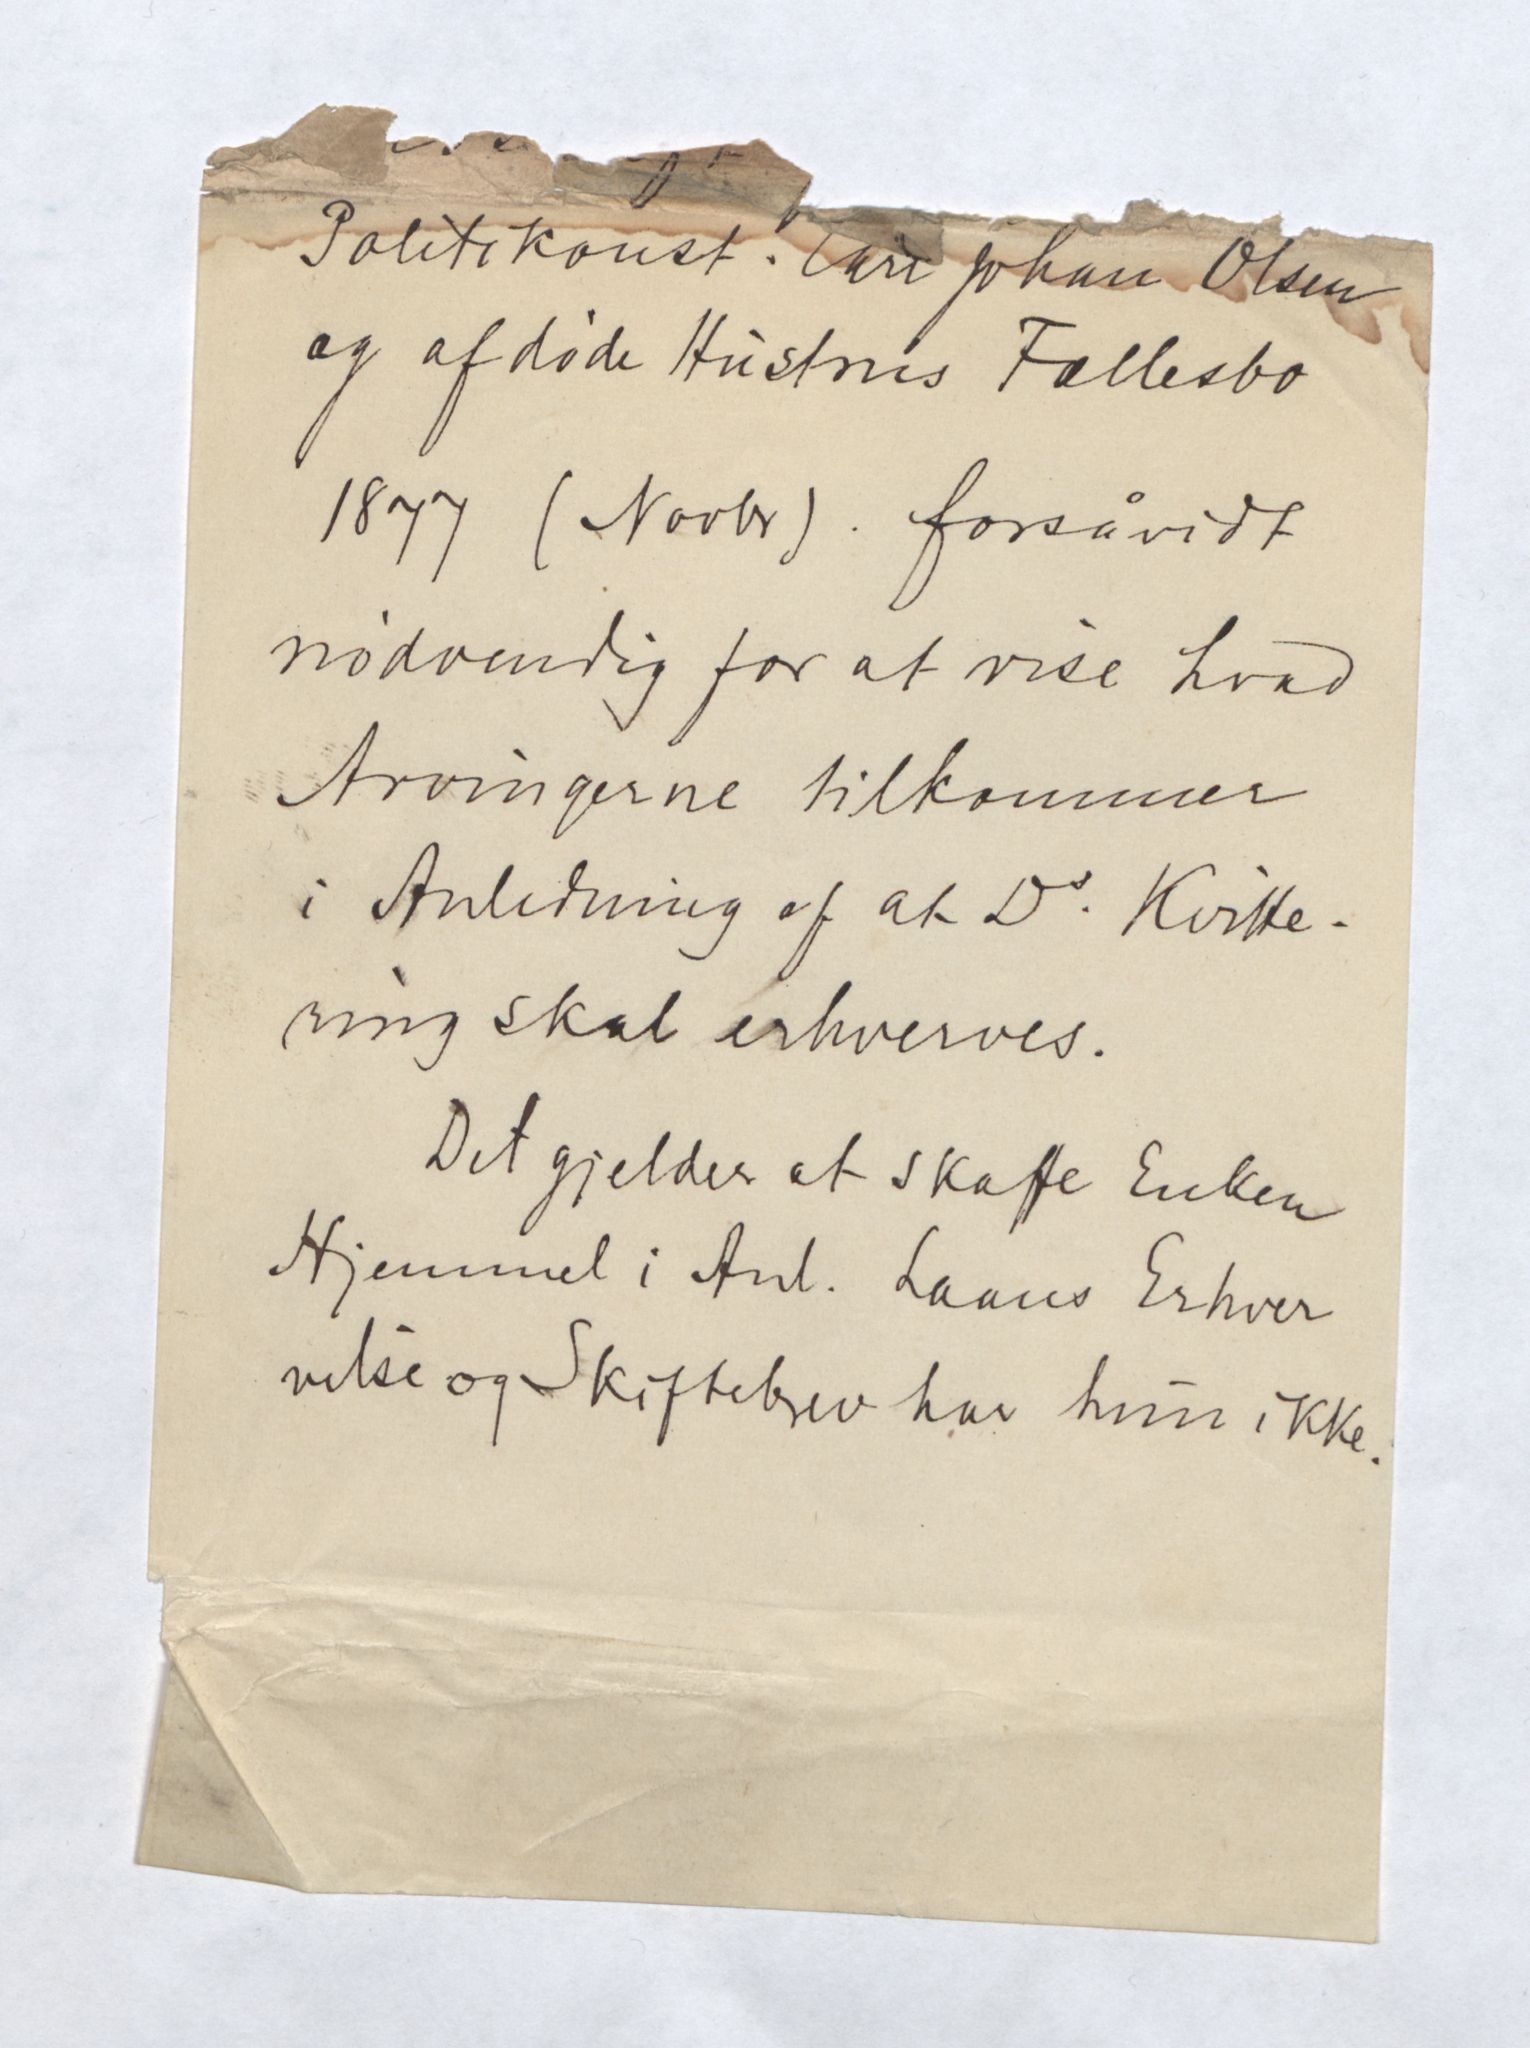 Politikonst. Carl Johan Olsen
og afdøde Hustrus Fællesbo
1877 (Novbr). forsåvidt
nødvendig for at vise hvad
Arvingerne tilkommer
i Anledning af at Ds. Kvitte-
ring skal erhverves.
Det gjelder at skaffe Enken
Hjemmel i Anl. Laans Erhver
velse og Skiftebrev har hun ikke.